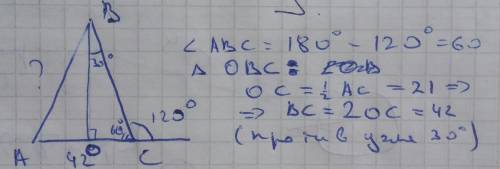 B
30°
?
60°
120°
A
42
O
C
∠ ABC = 180° - 120° = 60
Δ OBC:
OC = ½ AC = 21 =>
=> BC = 2OC = 42
(против угла 30°)